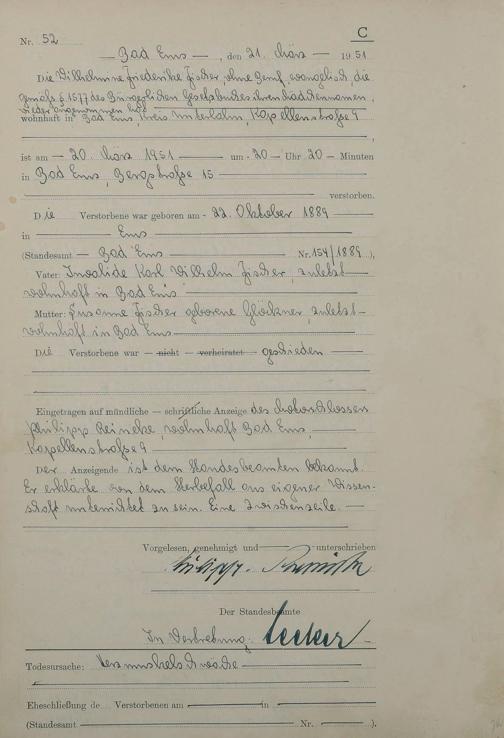 C
Nr. 52
Bad Ems, den 21. März 1951
Die Wilhelmine Friederike Fischer, ohne Beruf, evangelisch, die
gemäß § 1577 des Bürgerlichen Gesetzbuches ihren Mädchennamen
wieder angenommen hat,
wohnhaft in Bad Ems, Kreis Unterlahn, Kapellenstraße 9
ist am 20. März 1951 um 20 Uhr 20 Minuten
in Bad Ems, Bergstraße 15
verstorben.
Die Verstorbene war geboren am 22. Oktober 1889
in Ems
(Standesamt Bad Ems Nr. 154/1889),
Vater: Invalide Karl Wilhelm Fischer, zuletzt
wohnhaft in Bad Ems
Mutter: Susanne Fischer geborene Glöckner, zuletzt
wohnhaft in Bad Ems
Die Verstorbene war — nicht — verheiratet — geschieden
Eingetragen auf mündliche — schriftliche Anzeige des Motorschlossers
Philipp Reincke, wohnhaft Bad Ems,
Kapellenstraße 9
Der Anzeigende ist dem Standesbeamten bekannt.
Er erklärte von dem Sterbefall aus eigener Wissen-
schaft unterrichtet zu sein. Eine Zwischenzeile.
Vorgelesen, genehmigt und unterschrieben
Philipp
Der Standesbeamte
In Vertretung:
Todesursache: Herzmuskelschwäche
Eheschließung de Verstorbenen am in
(Standesamt Nr. ).